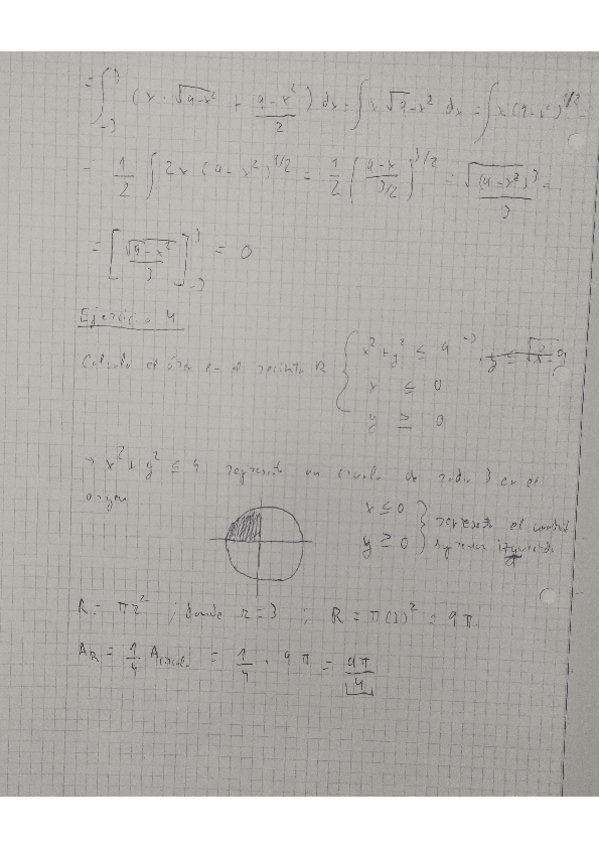 = ∫_{-3}^{3} (x · √(9-x²) + (9-x²)/2) dx = ∫ x √(9-x²) dx = ∫ x (9-x²)^{1/2} =
= 1/2 ∫ 2x (9-x²)^{1/2} = 1/2 [(9-x)/(3/2)]^{3/2} = √(9-x²)³/3 =
= [√(9-x²)/3]_{-3}^{3} = 0
Ejercicio 4
Calcula el área en el recinto R { x² + y² ≤ 9 →
x ≤ 0
y ≥ 0
→ x² + y² ≤ 9 representa un círculo de radio 3 en el
origen
x ≤ 0 } representa el
y ≥ 0 } superior izquierdo
R = πr² ; donde r = 3 ; R = π(3)² = 9π
A_R = 1/4 A_círculo = 1/4 · 9π = 9π/4